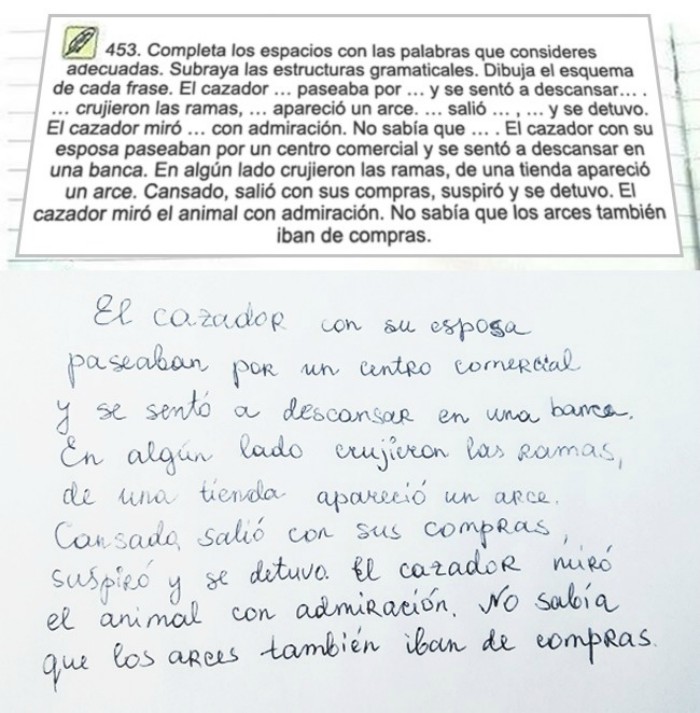 453. Completa los espacios con las palabras que consideres
adecuadas. Subraya las estructuras gramaticales. Dibuja el esquema
de cada frase. El cazador ... paseaba por ... y se sentó a descansar... .
... crujieron las ramas, ... apareció un arce. ... salió ... , ... y se detuvo.
El cazador miró ... con admiración. No sabía que ... . El cazador con su
esposa paseaban por un centro comercial y se sentó a descansar en
una banca. En algún lado crujieron las ramas, de una tienda apareció
un arce. Cansado, salió con sus compras, suspiró y se detuvo. El
cazador miró el animal con admiración. No sabía que los arces también
iban de compras.
El cazador con su esposa
paseaban por un centro comercial
y se sentó a descansar en una banca.
En algún lado crujieron las ramas,
de una tienda apareció un arce.
Cansado, salió con sus compras,
suspiró y se detuvo. El cazador miró
el animal con admiración. No sabía
que los arces también iban de compras.